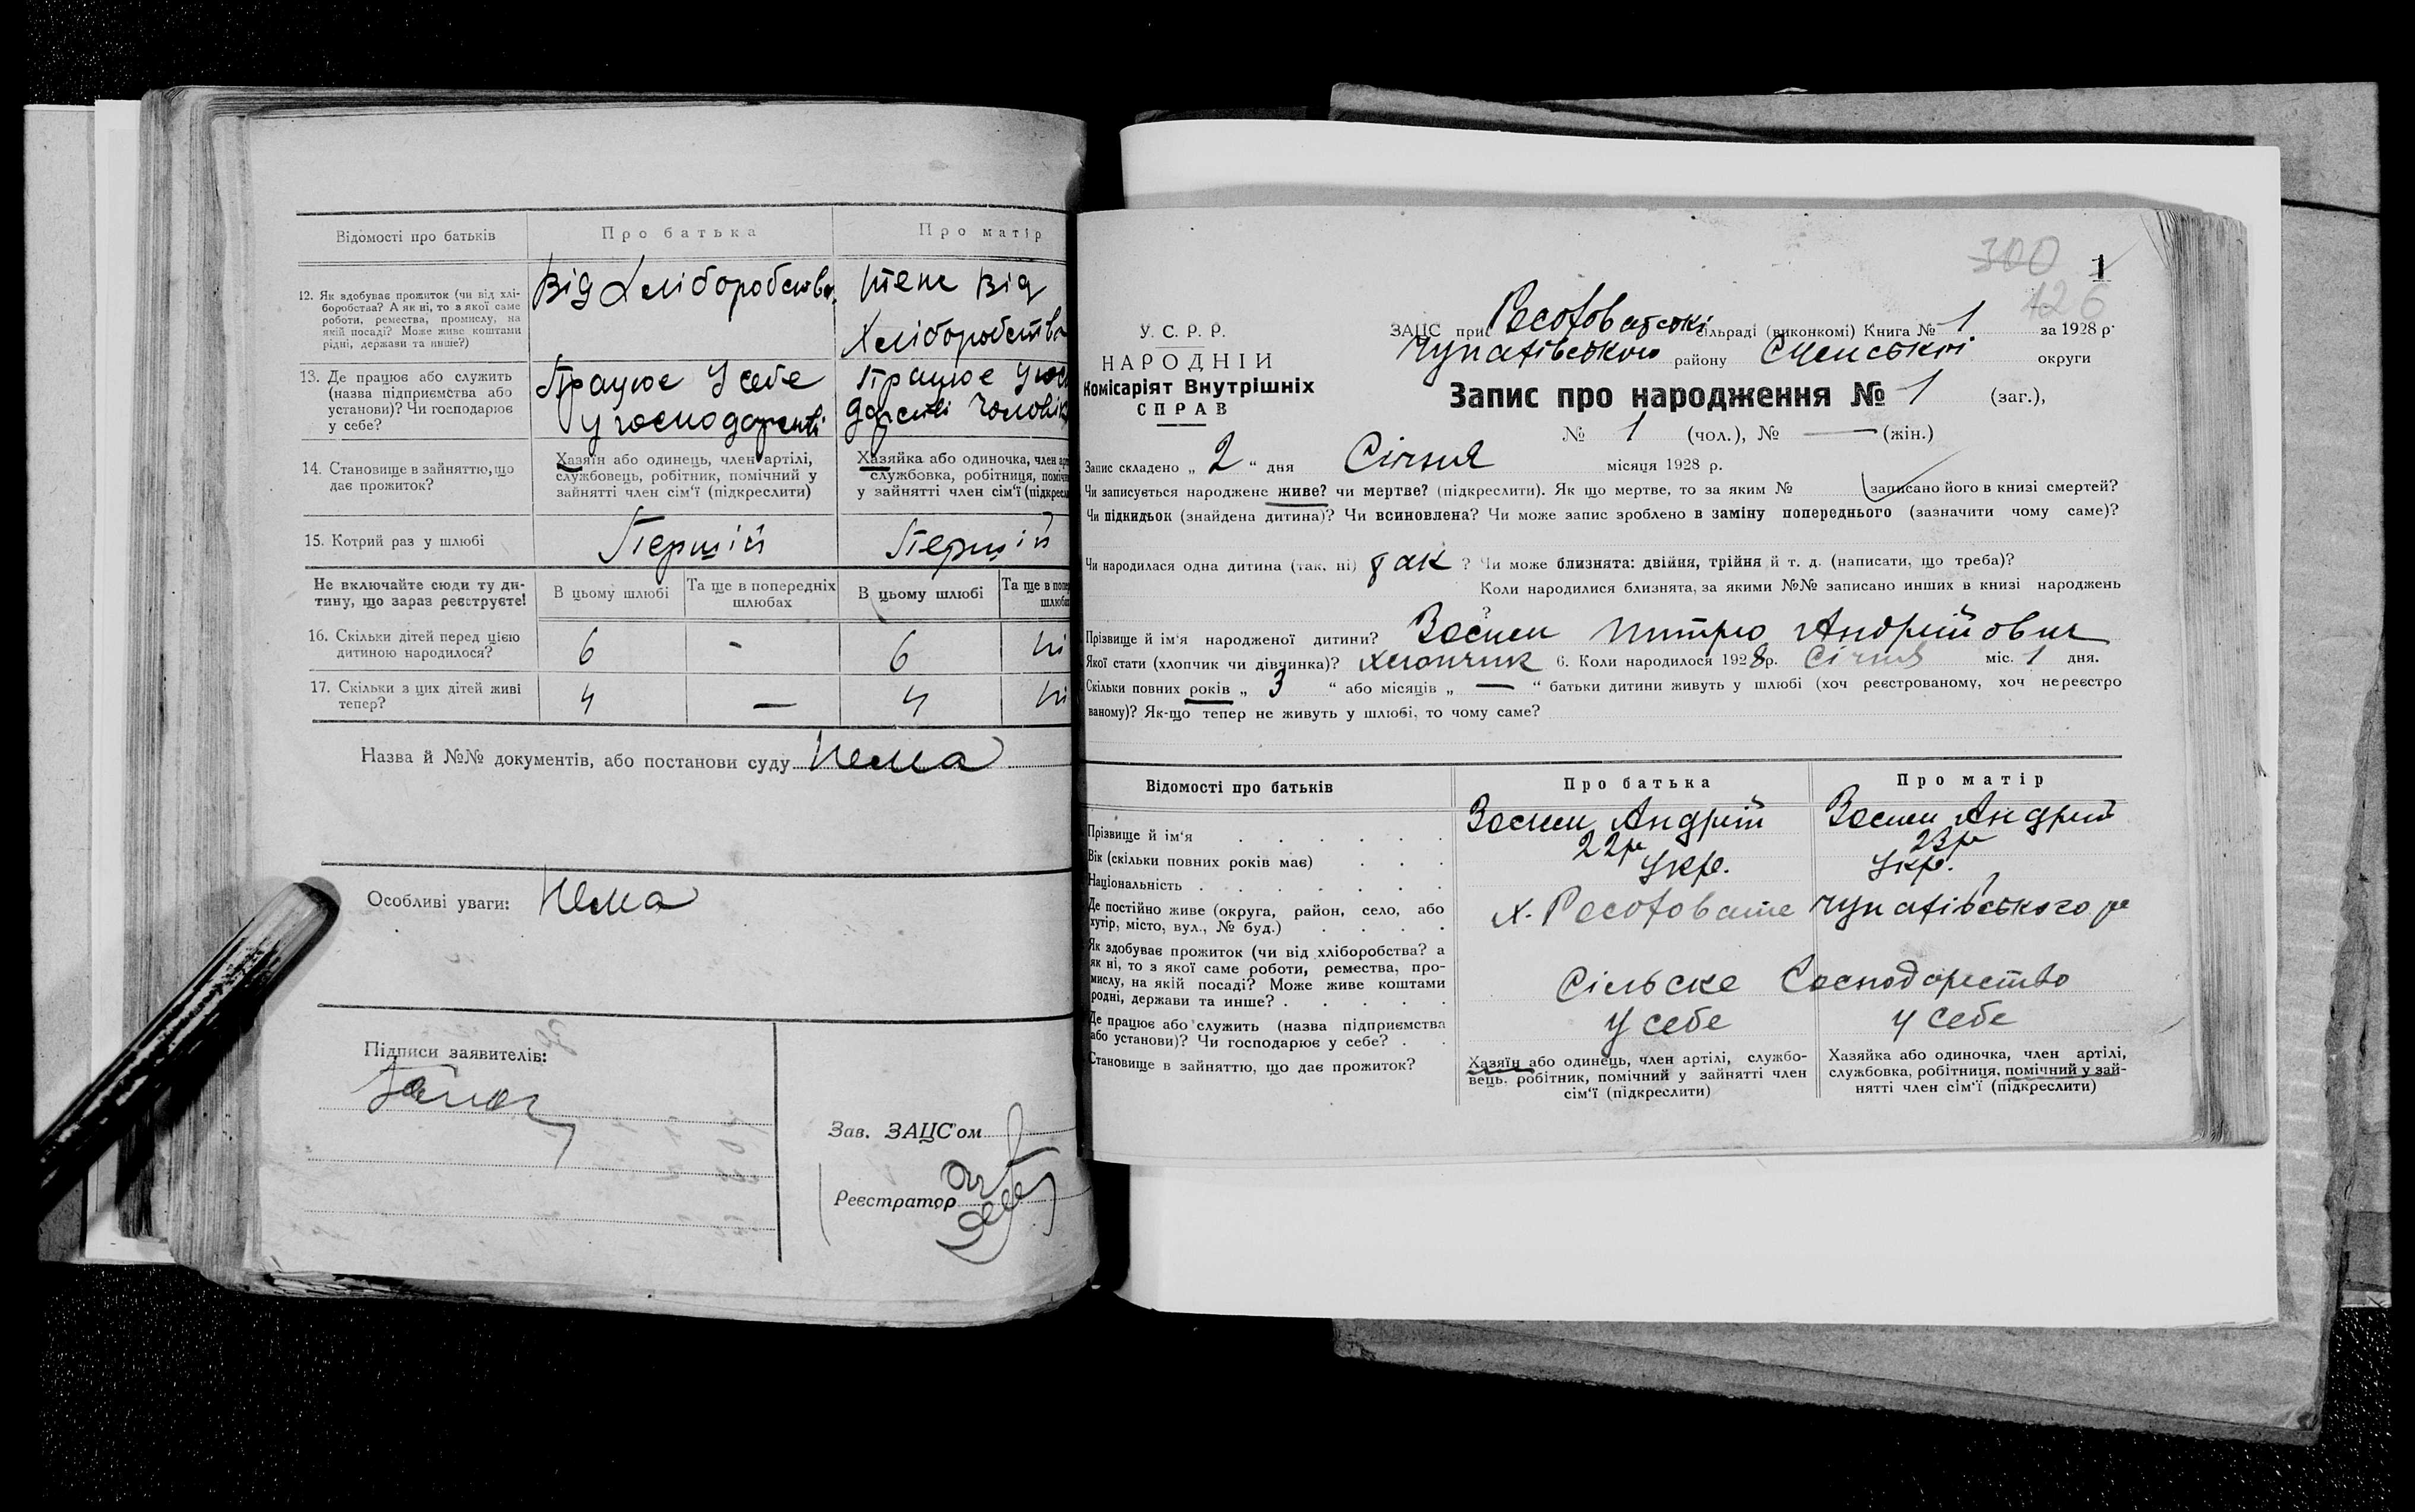 Відомості про батьків
Про батька
Про матір
12. Як здобуває прожиток (чи від хлі-
боробства? А як ні, то з якої саме
роботи, ремества, промислу, на
якій посаді? Може живе коштами
рідні, держави та инше?)
Від Хліборобства
теж від
Хліборобства
13. Де працює або служить
(назва підприємства або
установи)? Чи господарює
у себе?
Працює У себе
у господарстві
Працює У гос
дарстві чоловік
14. Становище в зайняттю, що
дає прожиток?
Хазяїн або одинець, член артілі,
службовець, робітник, помічний у
зайнятті член сім'ї (підкреслити)
Хазяйка або одиночка, член арт
службовка, робітниця, помічн
у зайнятті член сім'ї (підкресл
15. Котрий раз у шлюбі
Перший
Перший
Не включайте сюди ту ди-
тину, що зараз реєструєте!
В цьому шлюбі
Та ще в попередніх
шлюбах
В цьому шлюбі
Та ще в попе
шлюбах
16. Скільки дітей перед цією
дитиною народилося?
6
-
6
ні
17. Скільки з цих дітей живі
тепер?
4
—
4
ні
Назва й №№ документів, або постанови суду Нема
Особливі уваги: Нема
Підписи заявителів:
Зав. ЗАЦС'ом
Реєстратор
300
1
126
У. С. Р. Р.
НАРОДНІЙ
Комісаріят Внутрішніх
СПРАВ
ЗАЦС при сільраді (виконкомі) Книга № 1 за 1928 р.
Чупахівського району Сумської округи
Запис про народження № 1 (заг.),
№ 1 (чол.), № — (жін.)
Запис складено „ 2 “ дня Січня місяця 1928 р.
Чи записується народжене живе? чи мертве? (підкреслити). Як що мертве, то за яким № записано його в книзі смертей?
Чи підкидьок (знайдена дитина)? Чи всиновлена? Чи може запис зроблено в заміну попереднього (зазначити чому саме)?
Чи народилася одна дитина (так, ні) так ? Чи може близнята: двійня, трійня й т. д. (написати, що треба)?
Коли народилися близнята, за якими №№ записано инших в книзі народжень
?
Прізвище й ім'я народженої дитини? Андрійович
Якої стати (хлопчик чи дівчинка)? хлопчик 6. Коли народилося 1928р. Січня міс. 1 дня.
Скільки повних років „ 3 “ або місяців „ — “ батьки дитини живуть у шлюбі (хоч реєстрованому, хоч нереєстро
ваному)? Як-що тепер не живуть у шлюбі, то чому саме?
Відомості про батьків
Про батька
Про матір
Прізвище й ім'я
Андрій
Андрій
Вік (скільки повних років має)
22р
23р
Національність
Укр.
Укр.
Де постійно живе (округа, район, село, або
хутір, місто, вул., № буд.)
х. Чупахівського р
Як здобуває прожиток (чи від хліборобства? а
як ні, то з якої саме роботи, ремества, про-
мислу, на якій посаді? Може живе коштами
родні, держави та инше?
Сільське Господарство
Де працює або служить (назва підприємства
або установи)? Чи господарює у себе?
У себе
у себе
Становище в зайняттю, що дає прожиток?
Хазяїн або одинець, член артілі, службо-
вець, робітник, помічний у зайнятті член
сім'ї (підкреслити)
Хазяйка або одиночка, член артілі,
службовка, робітниця, помічний у зай-
нятті член сім'ї (підкреслити)